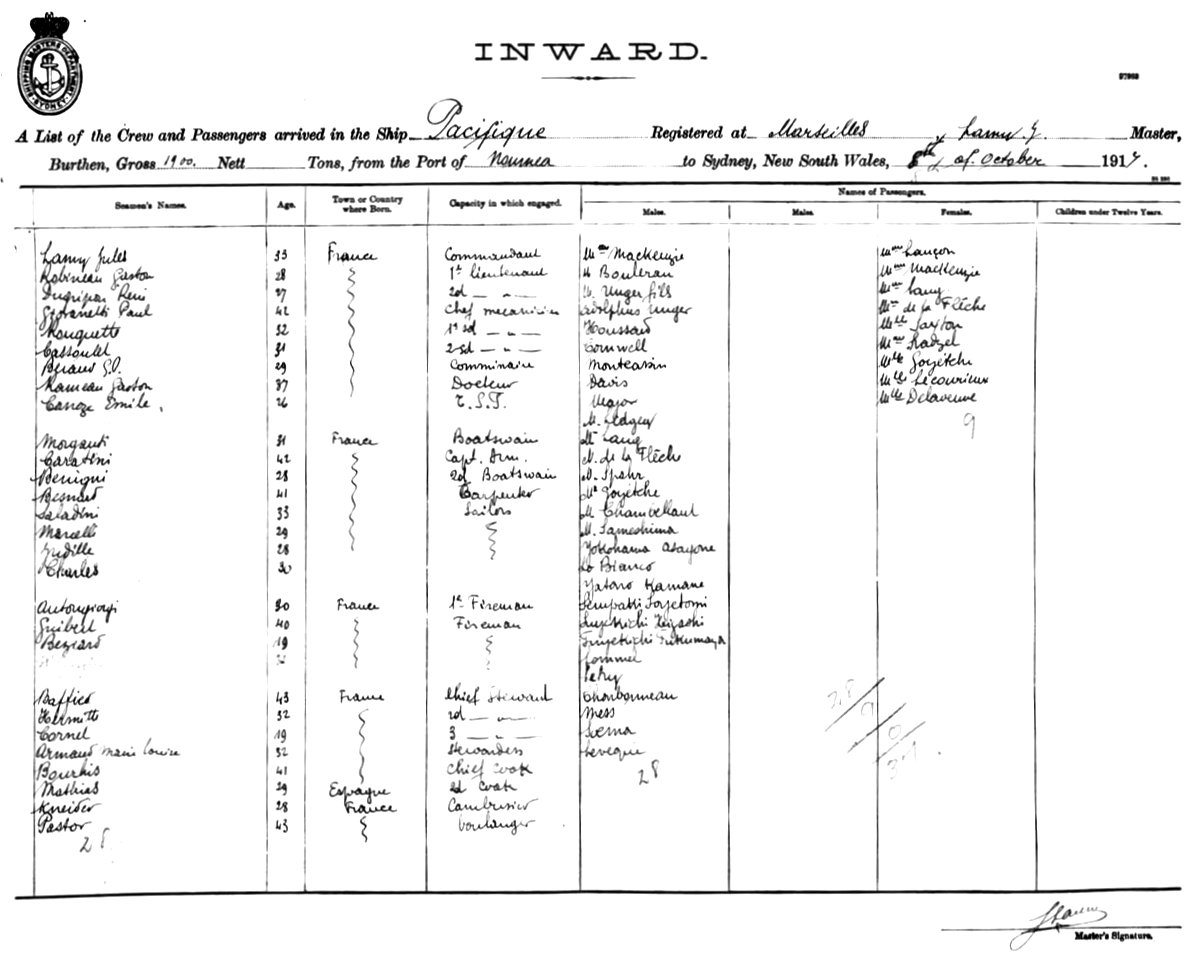 SHIPPING MASTERS DEPARTMENT SYDNEY
INWARD.
A List of the Crew and Passengers arrived in the Ship Pacifique Registered at Marseilles Lamy J. Master,
Burthen, Gross 1900. Nett Tons, from the Port of Noumea to Sydney, New South Wales, 8th of October 1917.
Seamen's Names. Age. Town or Country where Born. Capacity in which engaged. Names of Passengers.
Males. Males. Females. Children under Twelve Years.
Lamy Jules 33 France Commandant Mackenzie Mme Lançon
Robineau Gaston 28 1r lieutenant Bouleran Mme Mackenzie
27 2d — " — Unger fils Mme Lang
Giovanetti Paul 42 Chef mecanicien Adolphus Unger Mme de la Flêche
Rouquette 32 1r sd — " — Houssard Mlle Saxton
Cassoulet 31 2 sd — " — Cornwell Mme Radzel
Beraud G.O. 29 Comminaire Monteassin Mlle Goyétche
Rameau Gaston 37 Docteur Davis Mlle Lécourieux
Canoze Emile, 26 T.S.F. Major Mlle Delaveuve
M. Ledgey 9
Morganti 31 France Boatswain Lang
Caratini 42 Capt. Arm. M. de la Flêche
Benigni 28 2d Boatswain M. Spahr
Besnard 41 Carpenter Mr Goyétche
Saladini 33 Sailors M Chambellant
Marcelli 29 M. Sameshima
28 Yokohama Asagone
Charles 30 Lo Bianco
Yataro Kamane
Antongiorgi 30 France 1r Fireman
Guibert 40 Fireman
Beziard 19
Pommel
Petry
Baffico 43 France Chief Steward Charbonneau
Hermitte 32 2d — " — Mess
Cornel 19 3 — " — Soema
Armand Marie Louise 32 Stewardess Leveque
Bourhis 41 Chief Cook 28
Mathias 29 Espagne 2d Cook
Kneider 28 France Cambusier
Pastor 43 boulanger
28
28/9/0/37
Master's Signature.